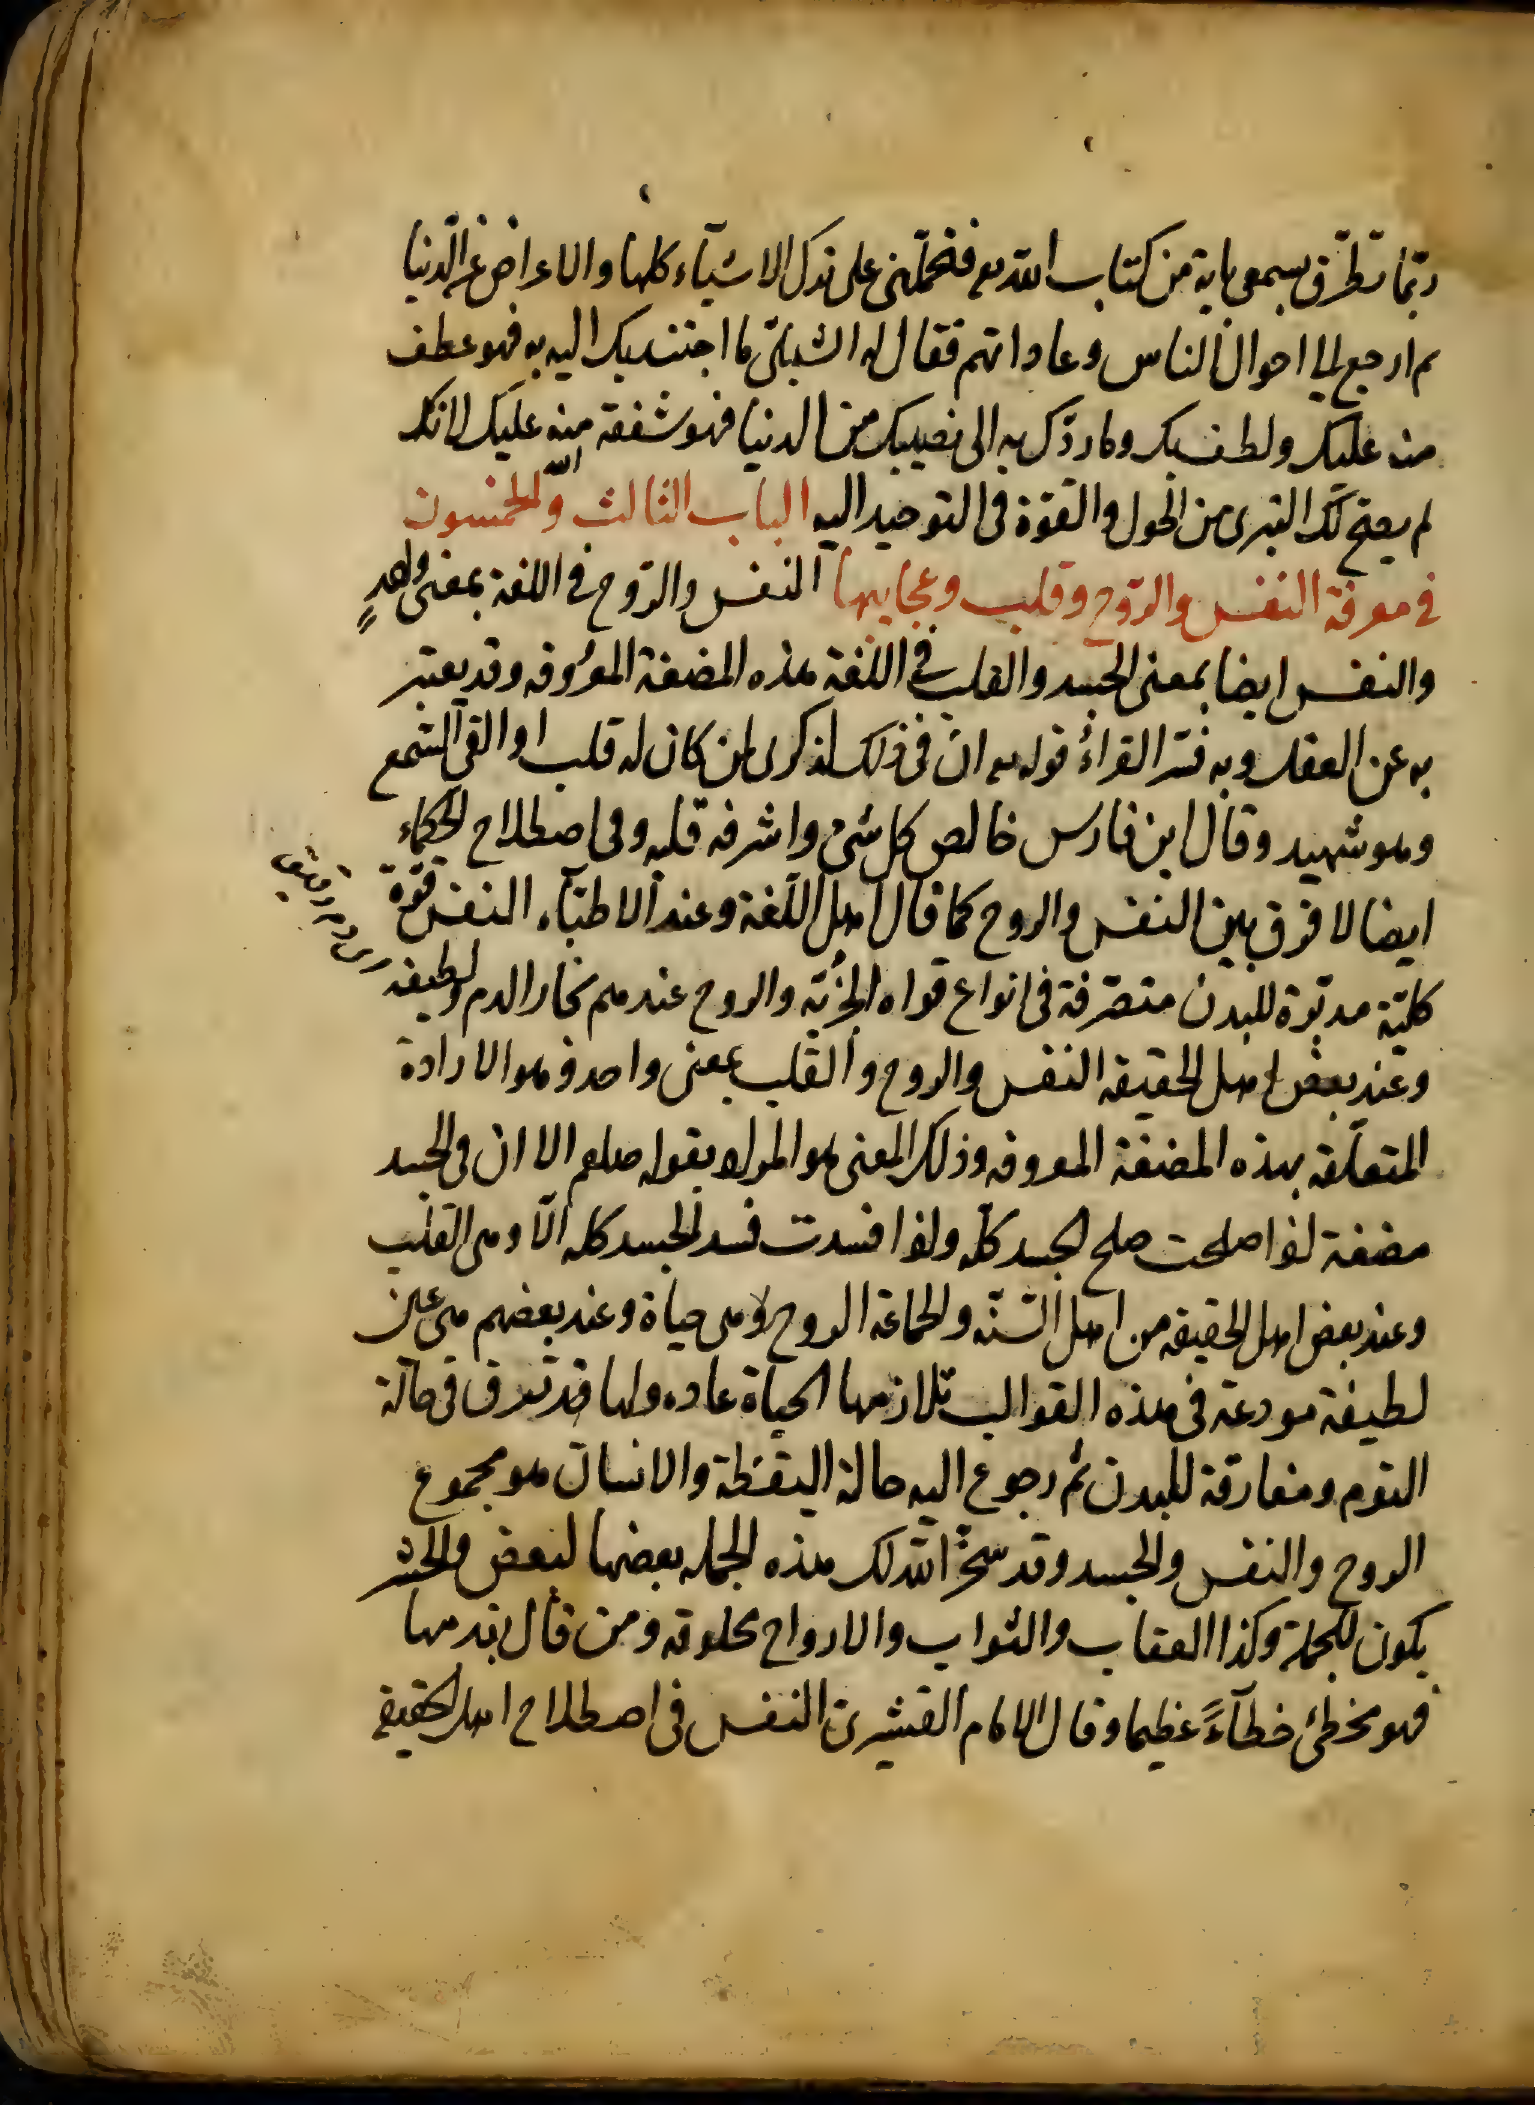 ربّما تطرّق بسمعى اية من كتاب الله تع فتحملنى على ترك الاشيآء كلها والاعراض عن الدّنيا
ثم ارجع الى احوال الناس وعاداتهم فقال له الشبلىّ ما اجتذبك اليه به فهو عطف
منه عليك ولطف بك وما ردّك به الى نصيبك من الدنيا فهو شفقة منه عليك لانك
لم يصح لك التبرى من الحول والقوّة فى التوجه اليه الله الباب الثالث والخمسون
فى معرفة النفس والرّوح وقلب وعجايبها النفس والرّوح فى اللغة بمعنى واحدٍ
والنفس ايضا بمعنى الجسد والقلب فى اللغة هذه المضغة المعروفه وقد يعتبر
به عن العقل وبه فسّر القراءُ قوله تع انّ فى ذلك لذكرى لمن كان له قلب او القى السّمع
وهو شهيد وقال ابن فارس خالص كل شئ واشرفه قلبه وفى اصطلاح الحكماء
ايضا لا فرق بين النفس والروح كما قال اهل اللّغة وعند الاطبّآء النفس قوّة
كليّة مدبّرة للبدن متصرّفة فى انواع قواه الجزئيّة والروح عندهم بخار الدم ولطيفه
وعند بعض اهل الحقيقه النفس والروح والقلب بمعنى واحد وهو الارادة
المتعلّقه بهذه المضغة المعروفه وذلك المعنى هو المراد بقوله صلعم الا ان فى الجسد
مضغة اذا صلحت صلح الجسد كلّه واذا فسدت فسد الجسد كله الّا وهى القلب
وعند بعض اهل الحقيقه من اهل السّنّة والجماعة الروح هى حياة وعند بعضهم هى عين
لطيفة مودعة فى هذه القوالب تلازمها الحياة عاده ولها قد ترق فى حالة
النوم ومفارقة للبدن ثم رجوع اليه حالة اليقظة والانسان هو مجموع
الروح والنفس والجسد وقد سخّر الله لك هذه الجمله بعضها لبعض والحشر
يكون للجملة وكذا العقاب والثواب والارواح مخلوقه ومن قال بقدمها
فهو مخطئ خطآءً عظيما وقال الامام القشيرى النفس فى اصطلاح اهل الحقيقه